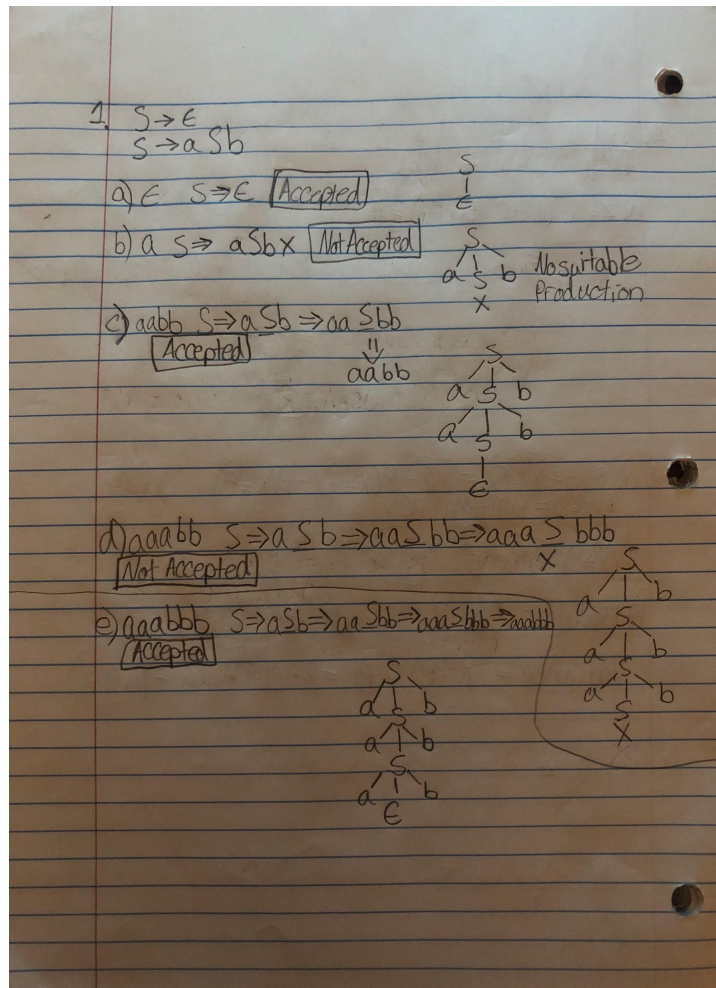 1. S→ε
S→aSb
a) ε S⇒ε Accepted
S
ε
b) a S⇒ aSb X Not Accepted
S
a S b
X
No suitable
Production
c) aabb S⇒aSb⇒aaSbb
Accepted
⇓
aabb
S
a S b
a S b
ε
d) aaabb S⇒aSb⇒aaSbb⇒aaaSbbb
X
Not Accepted
S
a S b
a S b
a S b
X
e) aaabbb S⇒aSb⇒aaSbb⇒aaaSbbb⇒aaabbb
Accepted
S
a S b
a S b
a ε b